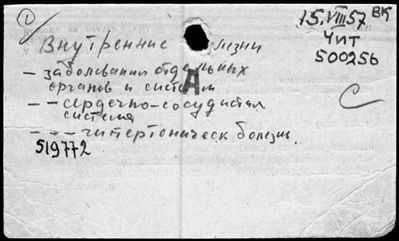 1
15.VIII 57 ВК
Чит
500256
Внутренние болезни
- заболевания отдельных
органов и систем
А
- - сердечно-сосудистая
система
С
- - - гипертоническ болезнь
519772